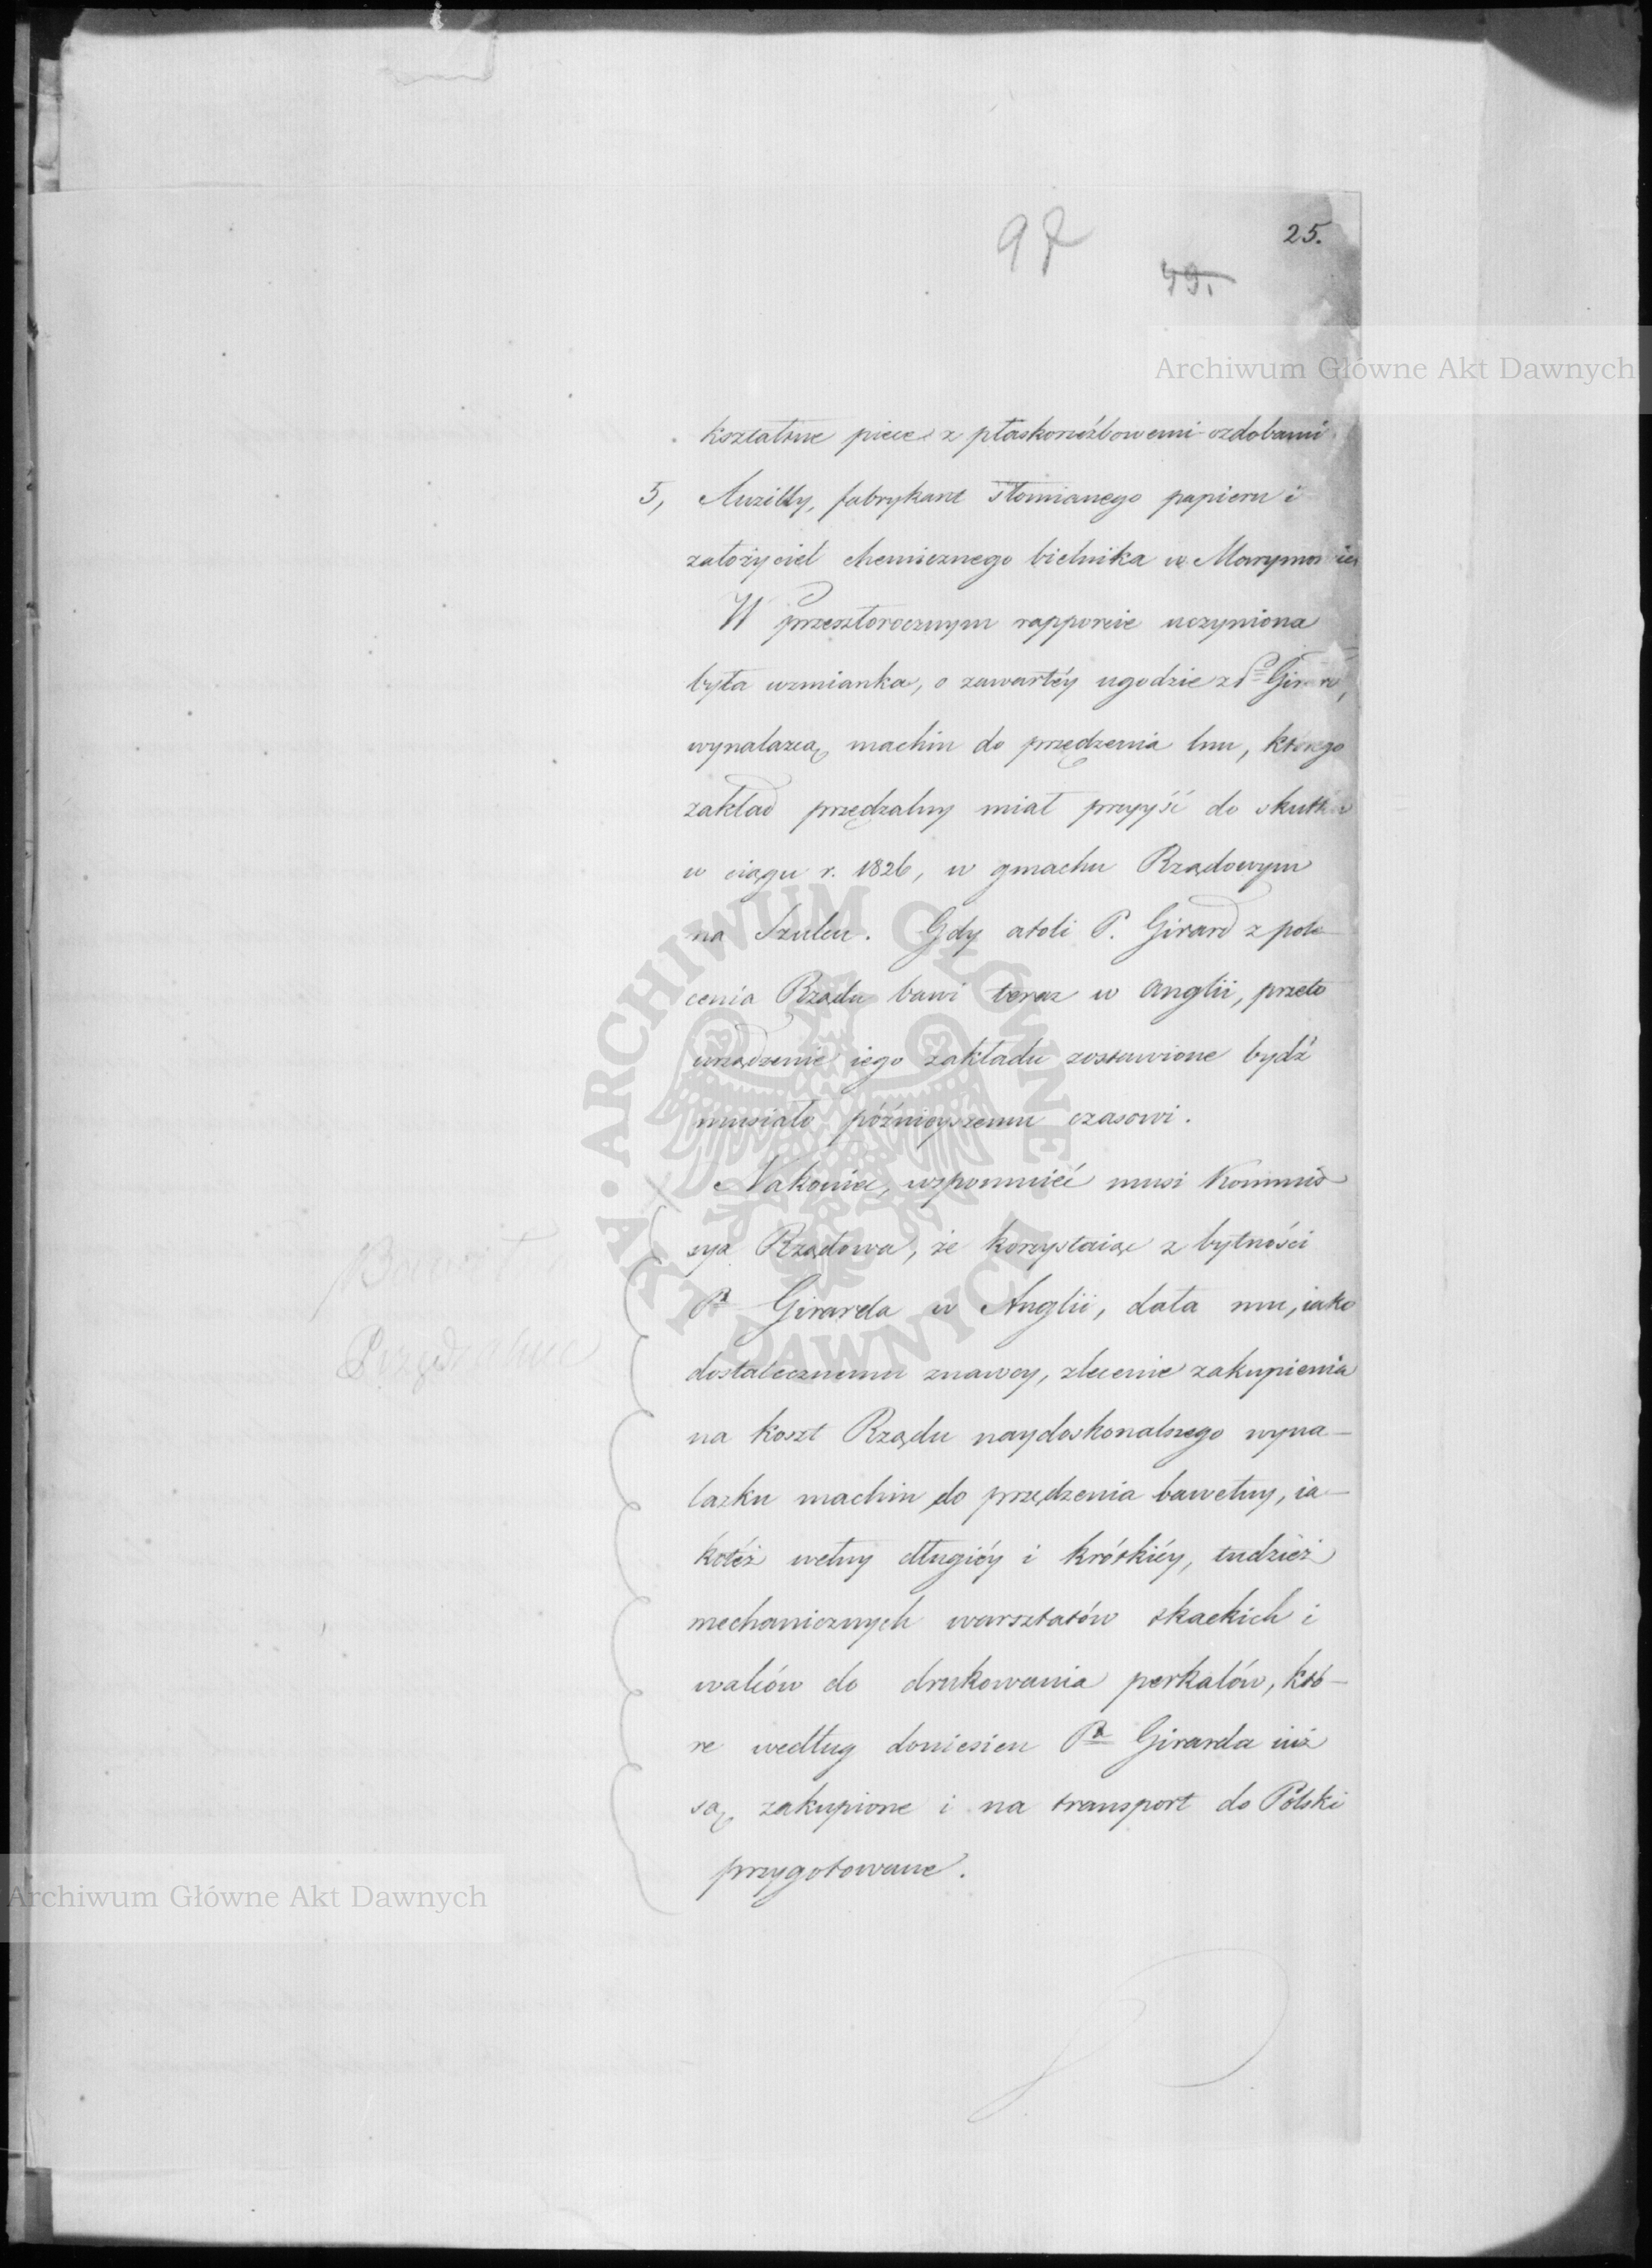 97
25.
49.
Archiwum Główne Akt Dawnych
kształtne piece z płaskorźbowemi ozdobami
5, fabrykant słomianego papieru i
założyciel chemicznego bielnika w
W przeszłorocznym rapporcie uczyniona
była wzmianka, o zawartéy ugodzie z Pem Girard,
wynalazcą machin do przędzenia lnu, którego
zakład przędzalny miał przyyść do skutku
w ciągu r. 1826, w gmachu Rządowym
na Szulcu. Gdy atoli P. Girard z pole-
cenia Rządu bawi teraz w Anglii, przeto
urządzenie iego zakładu zostawione bydź
musiało późnieyszemu czasowi.
Nakoniec, wspomnieć musi Kommis-
sya Rządowa, że korzystaiąc z bytności
Pa Girarda w Anglii, dała mu, iako
dostatecznemu znawcy, zlecenie zakupienia
na koszt Rządu naydoskonalszego wyna-
lazku machin do przędzenia bawełny, ia-
kotéż wełny długiéy i krótkiéy, tudzież
mechanicznych warsztatów tkackich i
walców do drukowania perkalów, któ-
re według doniesień Pa Girarda iuż
są zakupione i na transport do Polski
przygotowane.
Przędzalnie
ARCHIWUM GŁÓWNE AKT DAWNYCH
Archiwum Główne Akt Dawnych